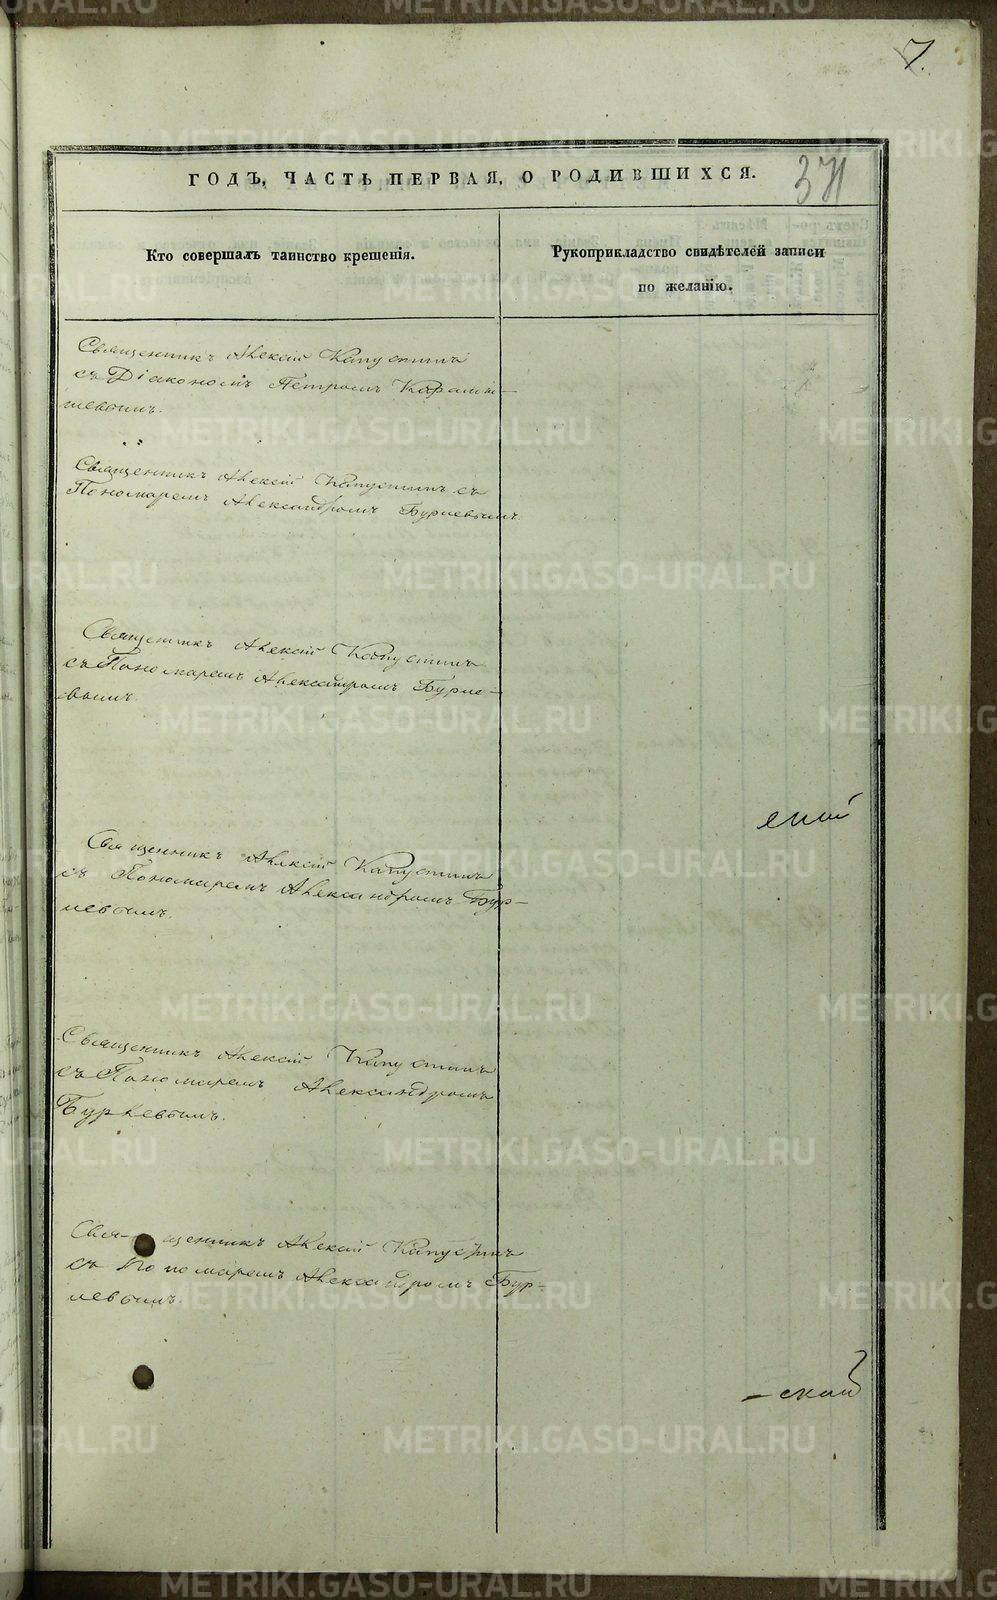 7.
371
ГОДЪ, ЧАСТЬ ПЕРВАЯ, О РОДИВШИХСЯ.
Кто совершалъ таинство крещенія.
Рукоприкладство свидѣтелей записи
по желанію.
Священникъ Алексій Капустинъ
съ Діакономъ Петромъ Карамы-
шевымъ.
Священникъ Алексій Капустинъ съ
Пономаремъ Александромъ Бурлевымъ.
Священникъ Алексій Капустинъ
съ Пономаремъ Александромъ Бурле-
вымъ.
Священникъ Алексій Капустинъ
съ Пономаремъ Александромъ Бур-
левымъ.
Священникъ Алексій Капустинъ
съ Пономаремъ Александромъ
Бурлевымъ.
Свя-щенникъ Алексій Капустинъ
съ Пономаремъ Александромъ Бур-
левымъ.
-скій
METRIKI.GASO-URAL.RU